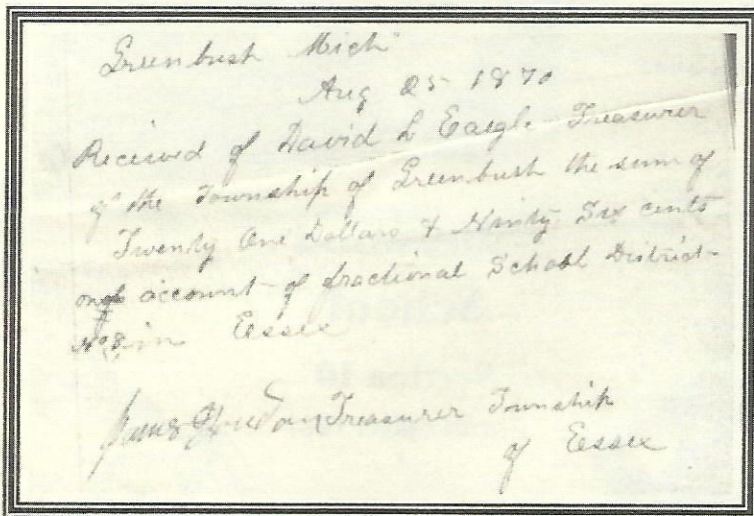 Greenbush Mich
Aug 25 1870
Received of David L Eaegle Treasurer
of the Township of Greenbush the sum of
Twenty One Dollars & Ninty Six cents
on account of fractional School District
No 8 in Essex
Treasurer Township
of Essex